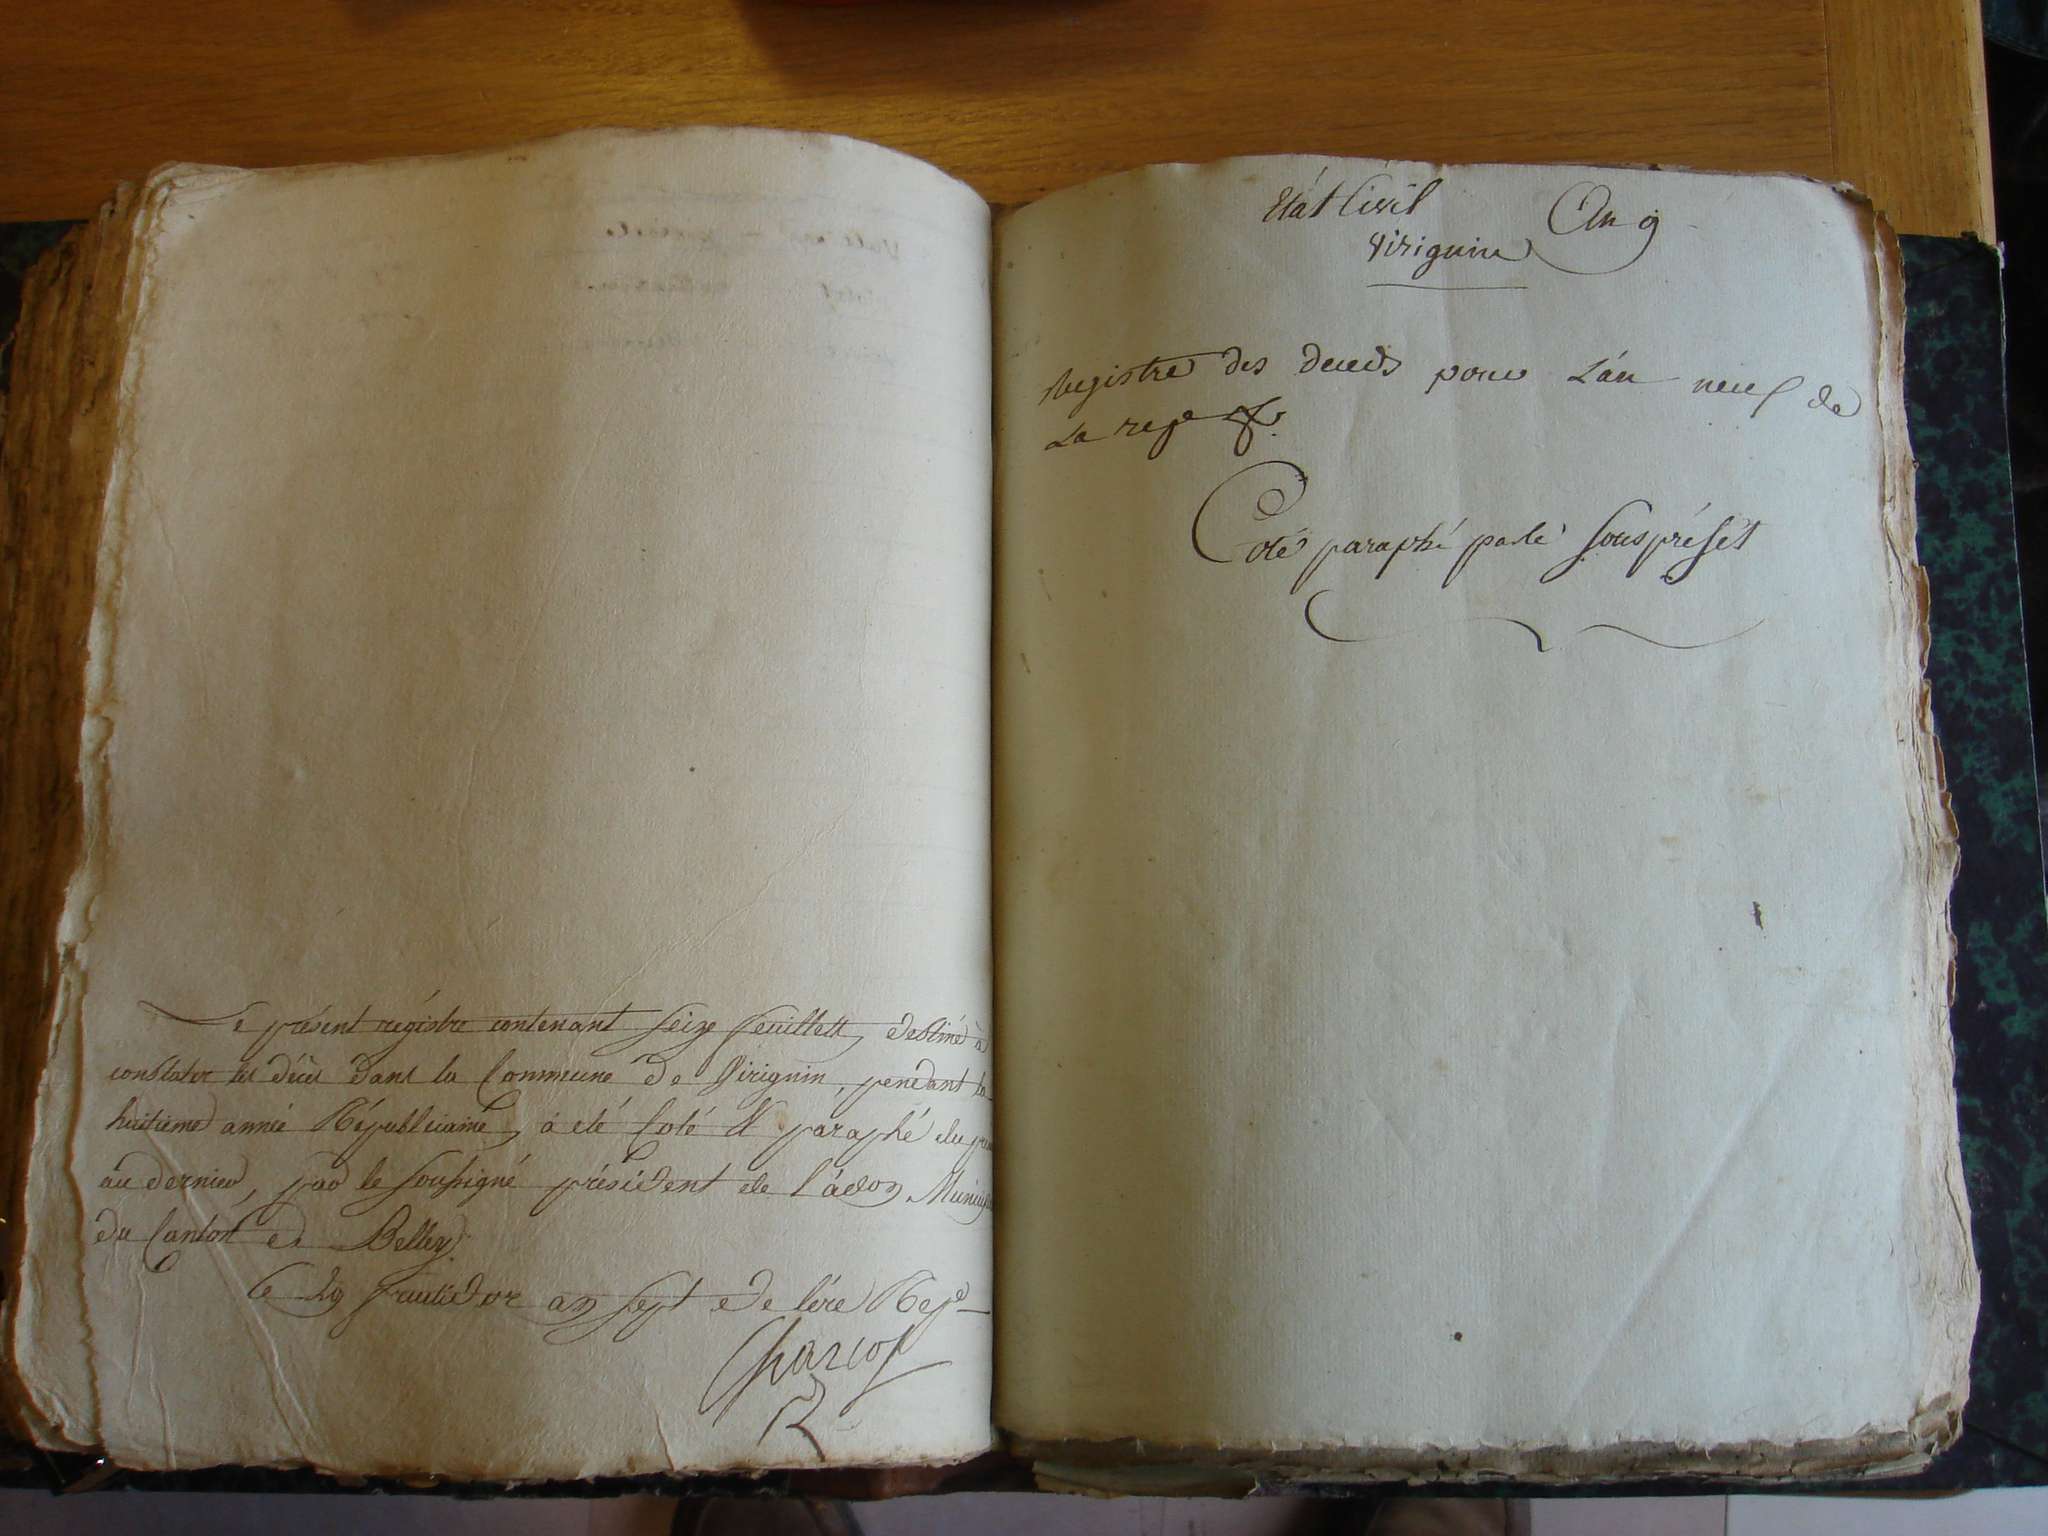 Le présent régistre contenant Seize feuillets, destiné à
constater les décès dans la Commune de Virignin, pendant la
huitieme année Républicaine, à eté Coté & paraphé du
au dernier, par le soussigné président de l'ádon
du Canton de Belley.
Ce 29 fructidor an sept de l'ére Repe
État Civil An 9
Virignin
Registre des deceds pour L'an neuf de
La repe &.
Coté paraphé par le Souspréfét